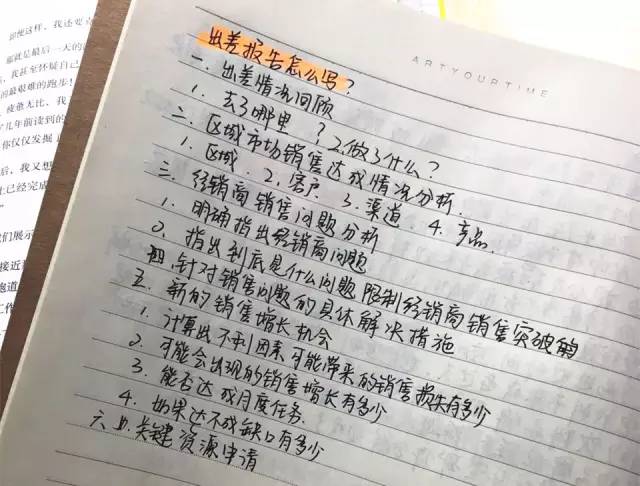 即便这样，我还要
那就是最后一天的
，我甚至怀疑自己
的最艰难的跑步！
，疲惫无比，我
几年前读到的
你仅仅发掘了
后，我又想
上已经完成
们展示
接近
跑道
工作
ARTYOURTIME
出差报告怎么写？
一、出差情况回顾
1. 去了哪里？2. 做了什么？
二、区域市场销售达成情况分析.
1. 区域. 2. 客户 3. 渠道. 4. 产品.
三、经销商销售问题分析
1. 明确指出经销商问题
2. 指出到底是什么问题限制经销商销售突破的
四、针对销售问题的具体解决措施
五、新的销售增长机会
1. 计算出不利因素可能带来的销售损失有多少
2. 可能会出现的销售增长有多少
3. 能否达成月度任务
4. 如果达不成缺口有多少
六、关键资源申请